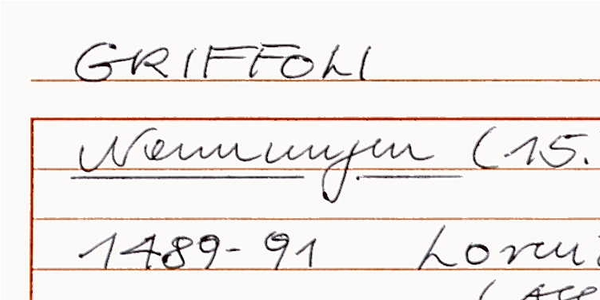 GRIFFOLI
Nennungen (15.
1489-91 Loren